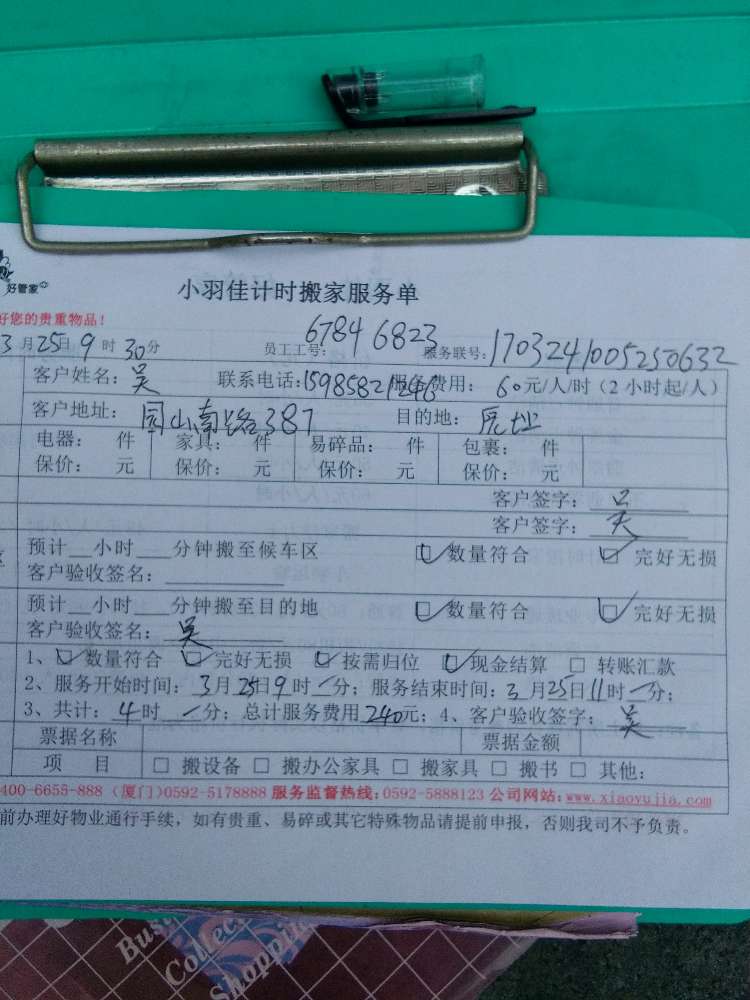 好管家
小羽佳计时搬家服务单
好您的贵重物品!
3月25日9时30分 员工工号: 6784 6823 服务联号: 1703241005250632
客户姓名: 吴 联系电话: 15985821246 服务费用: 60元/人/时(2小时起/人)
客户地址: 园山南路387 目的地: 原址
电器: 件 家具: 件 易碎品: 件 包裹: 件
保价: 元 保价: 元 保价: 元 保价: 元
客户签字: 吴
客户签字: 吴
预计__小时___分钟搬至候车区 ☑数量符合 ☑完好无损
客户验收签名:
预计__小时___分钟搬至目的地 ☑数量符合 ☑完好无损
客户验收签名: 吴
1、☑数量符合 ☑完好无损 ☑按需归位 ☑现金结算 □ 转账汇款
2、服务开始时间: 3月25日9时/分; 服务结束时间: 3月25日11时/分;
3、共计: 4时/分; 总计服务费用240元; 4、客户验收签字: 吴
票据名称 票据金额
项 目 □ 搬设备 □ 搬办公家具 □ 搬家具 □ 搬书 □ 其他:
400-6655-888 (厦门)0592-5178888 服务监督热线:0592-5888123 公司网站:www.xiaoyujia.com
前办理好物业通行手续, 如有贵重、易碎或其它特殊物品请提前申报, 否则我司不予负责。
Collec
Shoppin